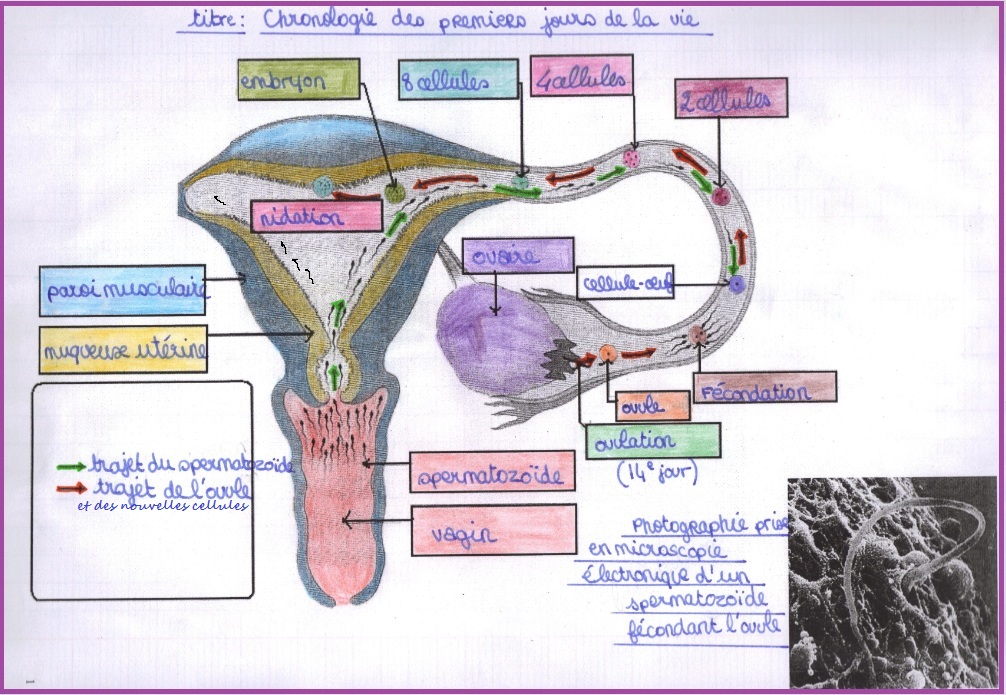 titre: Chronologie des premiers jours de la vie
embryon
8 cellules
4 cellules
2 cellules
nidation
ovaire
cellule-œuf
paroi musculaire
muqueuse utérine
Fécondation
ovule
ovulation
(14e jour)
trajet du spermatozoïde
trajet de l'ovule
et des nouvelles cellules
spermatozoïde
vagin
Photographie prise
en microscopie
électronique d'un
spermatozoïde
fécondant l'ovule